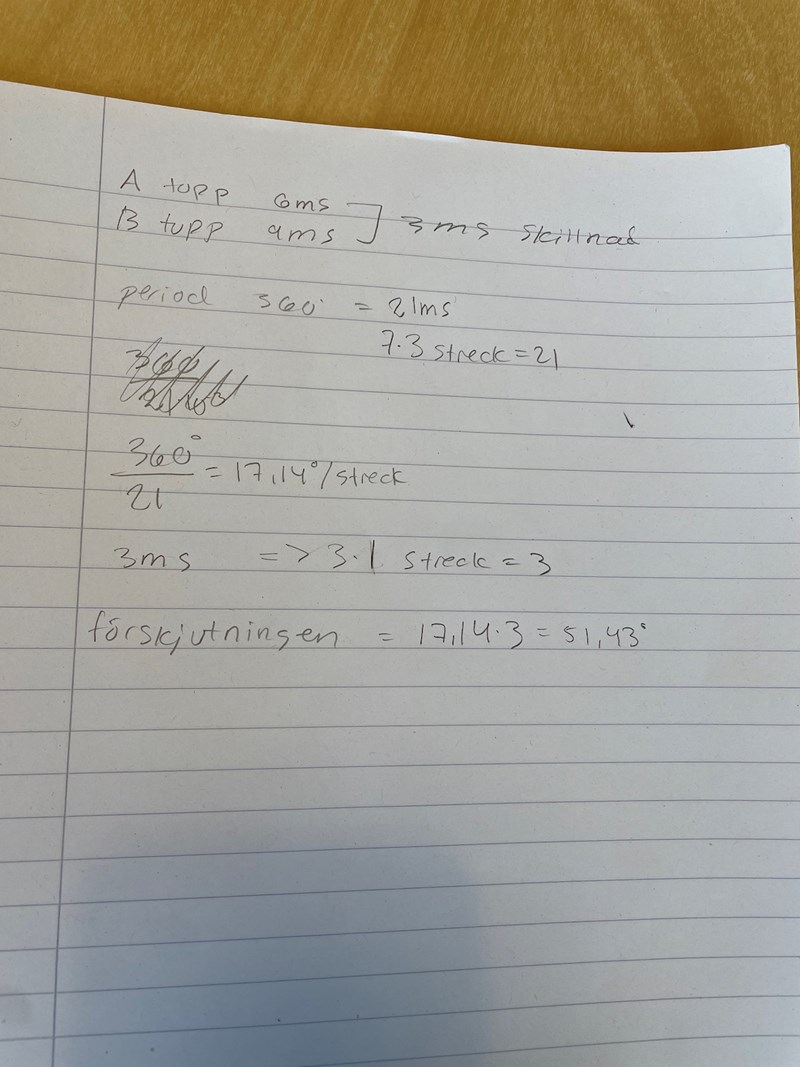 A topp 6ms
B topp 9ms ] 3ms skillnad
period 360° = 21ms
7.3 streck = 21
360°/21 = 17,14°/streck
3ms => 3.1 streck = 3
förskjutningen = 17,14.3 = 51,43°